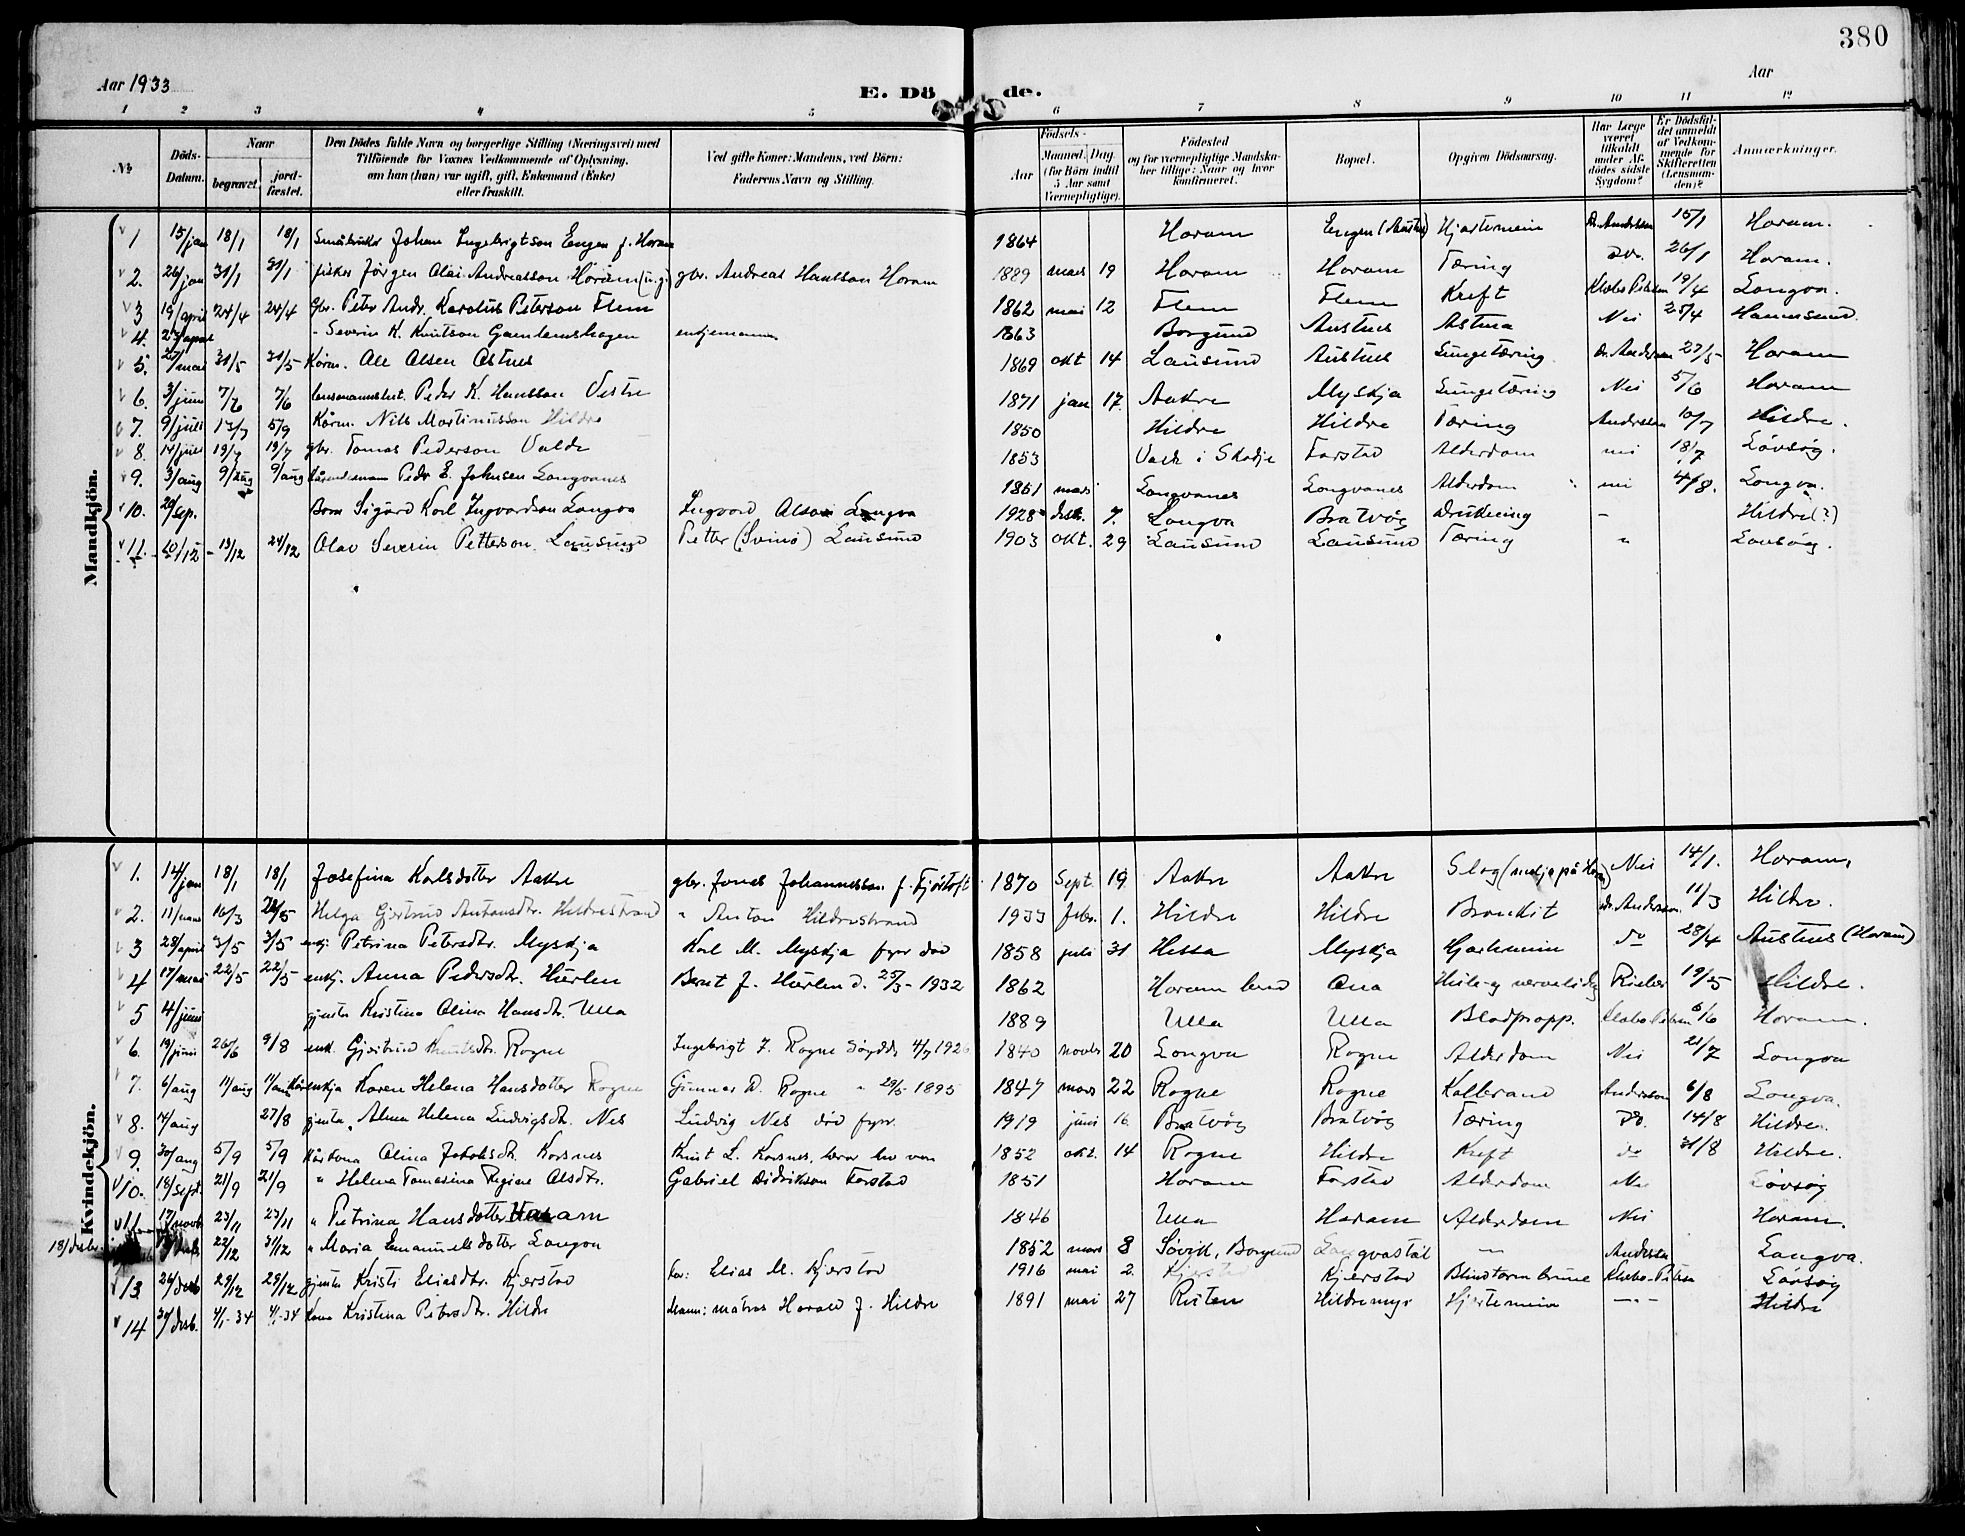 380
Aar 1933
Aar
E. Dö de.
1 2 3 4 5 6 7 8 9 10 11 12
№
Döds-Datum.
Naar
begravet.
jord-fæstet.
Den Dödes fulde Navn og borgerlige Stilling (Næringsvei) med Tilföiende for Voxnes Vedkommende af Oplysning, om han (hun) var ugift, gift, Enkemand (Enke) eller fraskilt.
Ved gifte Koner: Mandens, ved Börn: Faderens Navn og Stilling.
Födsels-
Aar
Maaned. Dag.
(for Börn indtil 5 Aar samt Værnepligtige).
Födested og for værnepligtige Mandskaber tillige: Naar og hvor konfirmeret.
Bopæl.
Opgiven Dödsaarsag.
Har Læge været tilkaldt under Afdödes sidste Sygdom?
Er Dödsfaldet anmeldt af Vedkommende for Skifteretten (Lensmanden)?
Anmærkninger.
Mandkjön.
1 15/jan 18/1 18/1 Småbruker Johan Ingebrigtson Engen f. Haram 1864 Haram Engen Dr. Anderssen 15/1 Haram.
2. 26/jan 31/1 31/1 fisker Jörgen Olai Andreasson Haram (u.g.) gbr. Andreas Hansson Haram 1889 mars 19 Haram Haram Tæring do. 26/1 Haram.
3 19/april 24/4 24/4 Gbr. Peter Andr. Karolius Peterson Flem 1862 mai 12 Flem Flem Kreft 19/4 Longva.
4. Severin K. Knutson Gamlemshagen enkjemann 1863 Borgund Austnes Astma Nei 25/4 Hamnsund.
5. 27/mai 31/5 31/5 Kårm. Ole Olsen Astnes 1869 okt 14 Lausund Austnes Lungetæring Dr. Anderssen 27/5 Haram
6. 3/juni 7/6 7/6 Peder K. Hansson Vestre 1871 jan 17. Aakre Myskja Lungetæring Nei 5/6 Haram
7. 9/juli 13/7 5/9 Kårm. Nils Martinusson Hildre 1850 Hildre Hildre Tæring Anderssen 10/7 Hildre.
8. 14/juli 19/7 19/7 gbr. Tomas Pederson Valde 1853 Valde i Skodje Farstad Alderdom nei 18/7 Lövsög.
9. 3/aug 9/aug 9/aug Kårmann Pedr E. Johnsen Longvanes 1851 mars Longvanes Longvanes Alderdom nei 4/8. Longva.
10. 20/sep. Barn Sigurd Karl Ingvardson Longva Ingvard Olson Longva 1928 desb. 7. Longva Bratvåg Drukning - Hildre (?)
11. 10/12 13/12 24/12 Olav Severin Petterson Lausund Petter (Svinö) Lausund 1903 okt. 29 Lausund Lausund Tæring " Lövsög.
Kvindekjön.
1. 14/jan 18/1 18/1 Josefina Karlsdotter Aakre gbr. Jonas Johannesson f. Fjörtoft 1870 Sept. 19 Aakre Aakre Slag Nei 14/1. Haram.
2. 11/mars 16/3 Helga Gjertrud Antonsdtr. Hildrestrand " Anton Hildrestrand 1933 febr. 1. Hildre Hildre Bronkit dr. Anderssen 11/3 Hildre.
3 28/april 3/5 3/5 enkj. Petrina Petersdtr. Myskja Karl M. Myskja fyrr död 1858 juli 31 Hessa Myskja Hjartemein do 28/4 Austnes (Haram)
4 17/mai 22/5 22/5 enkj. Anna Pedersdtr. Hurlen Bernt J. Hurlen d. 25/3 - 1932 1862 Haram 19/5 Hildre.
5 4/juni gjenta Kristine Olina Hansdtr. Ulla 1889 Ulla Ulla Blodpropp. 6/6 Haram.
6. 19/juni 26/6 9/8 enk. Gjertrud Knutsdtr. Rogne Ingebrigt J. Rogne 4/7 1926 1840 novbr 20 Longva Rogne Alderdom Nei 21/7 Longva
7. 6/aug 11/aug 11/aug Karen Helena Hansdotter Rogne Gunnar D. Rogne " 29/5 - 1895 1847 mars 22 Rogne Rogne Kolbrand Anderssen 6/8 Longva.
8. 14/aug 27/8 gjenta Alma Helena Ludvigsdtr. Nes Ludvig Nes död fyrr. 1919 juni 16 Bratvåg Bratvåg Tæring do. 14/8 Hildre.
9. 30/aug 5/9 5/9 Kårkona Olina Jakobsdtr. Korsnes Knut L. Korsnes, 1852 okt. 14 Rogne Hildre Kreft do 31/8 Hildre.
10. 18/sept. 21/9 21/9 " Helena Tomasina Regine Olsdtr. Gabriel Didrikson Farstad 1851 Haram Farstad Alderdom Nei Lövsög
11. 17/novb 23/11 23/11 " Petrina Hansdotter Haram 1846 Ulla Haram Alderdom Nei Haram.
18/desbr 22/12 31/12 " Maria Emanuelsdotter Longva 1852 mars 8 Sövik, Borgund Longvastål " Anderssen Longva.
13. 26/desb 29/12 29/12 gjenta Kristi Eliasdtr. Kjerstad Far: Elias M. Kjerstad 1916 mai 2. Kjerstad Kjerstad Lövsög
14 30/desb. 4/1-34 4/1-34 Kona Kristina Petersdtr. Hildre Mann: matros Harald J. Hildre 1891 mai 27 Risten Hildremyr Hjartemein -"- Hildre